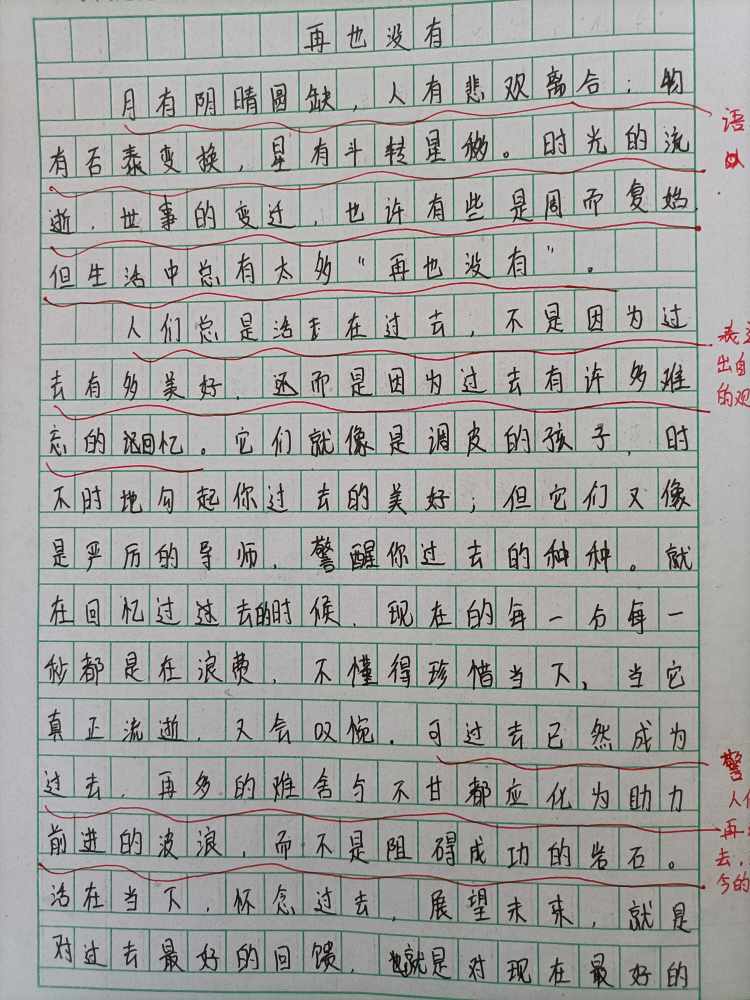 再也没有
月有阴晴圆缺，人有悲观离合；物
语
有否泰变换，星有斗转星移。时光的流
以
逝，世事的变迁，也许有些是周而复始，
但生活中总有太多“再也没有”。
人们总是活在过去，不是因为过
表达
出自
去有多美好，还而是因为过去有许多难
的观
忘的回忆。它们就像是调皮的孩子，时
不时地勾起你过去的美好；但它们又像
是严厉的导师，警醒你过去的种种。就
在回忆过过去的时候，现在的每一分每一
秒都是在浪费，不懂得珍惜当下，当它
真正流逝，又会叹惋，可过去已然成为
警
过去，再多的难舍与不甘都应化为助力
人们
再
前进的波浪，而不是阻碍成功的岩石。
去，
今的
活在当下，怀念过去，展望未来，就是
对过去最好的回馈，也就是对现在最好的